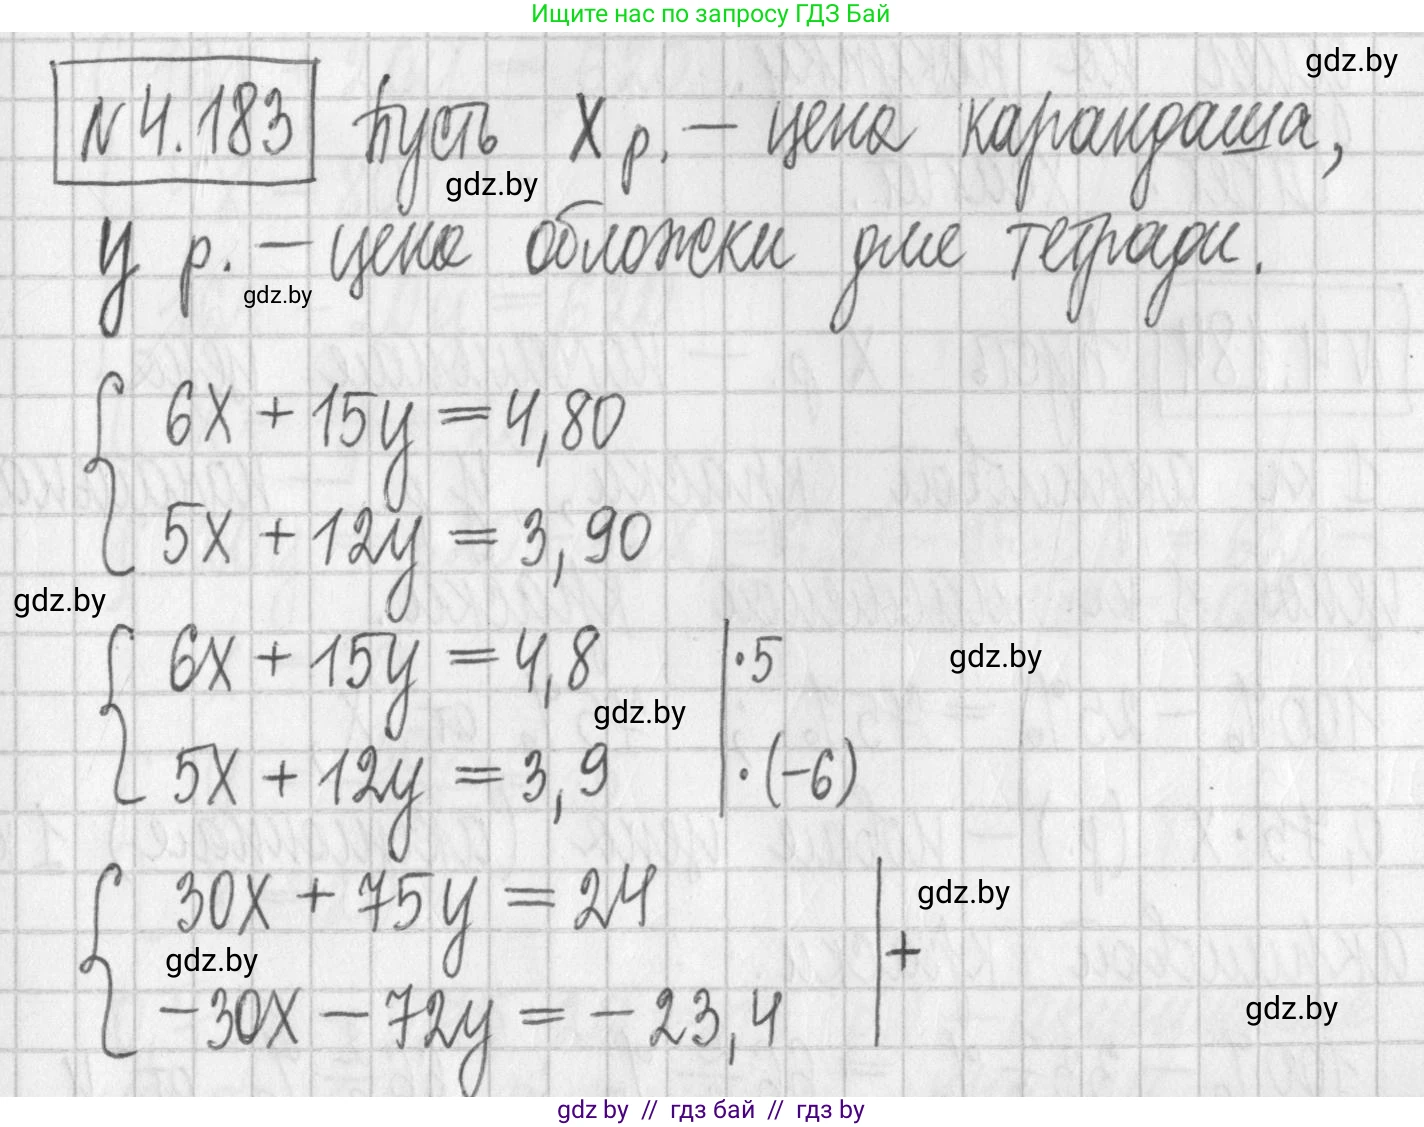 Ищите нас по запросу ГДЗ Бай
gdz.by
№4.183 Пусть x р. – цена карандаша,
gdz.by
y р. – цена обложки для тетради.
gdz.by
6x + 15y = 4,80
5x + 12y = 3,90
gdz.by
6x + 15y = 4,8 | ·5
gdz.by
gdz.by
5x + 12y = 3,9 | ·(-6)
30x + 75y = 24
gdz.by
+
gdz.by
-30x - 72y = -23,4
gdz.by
gdz by // гдз бай // гдз by